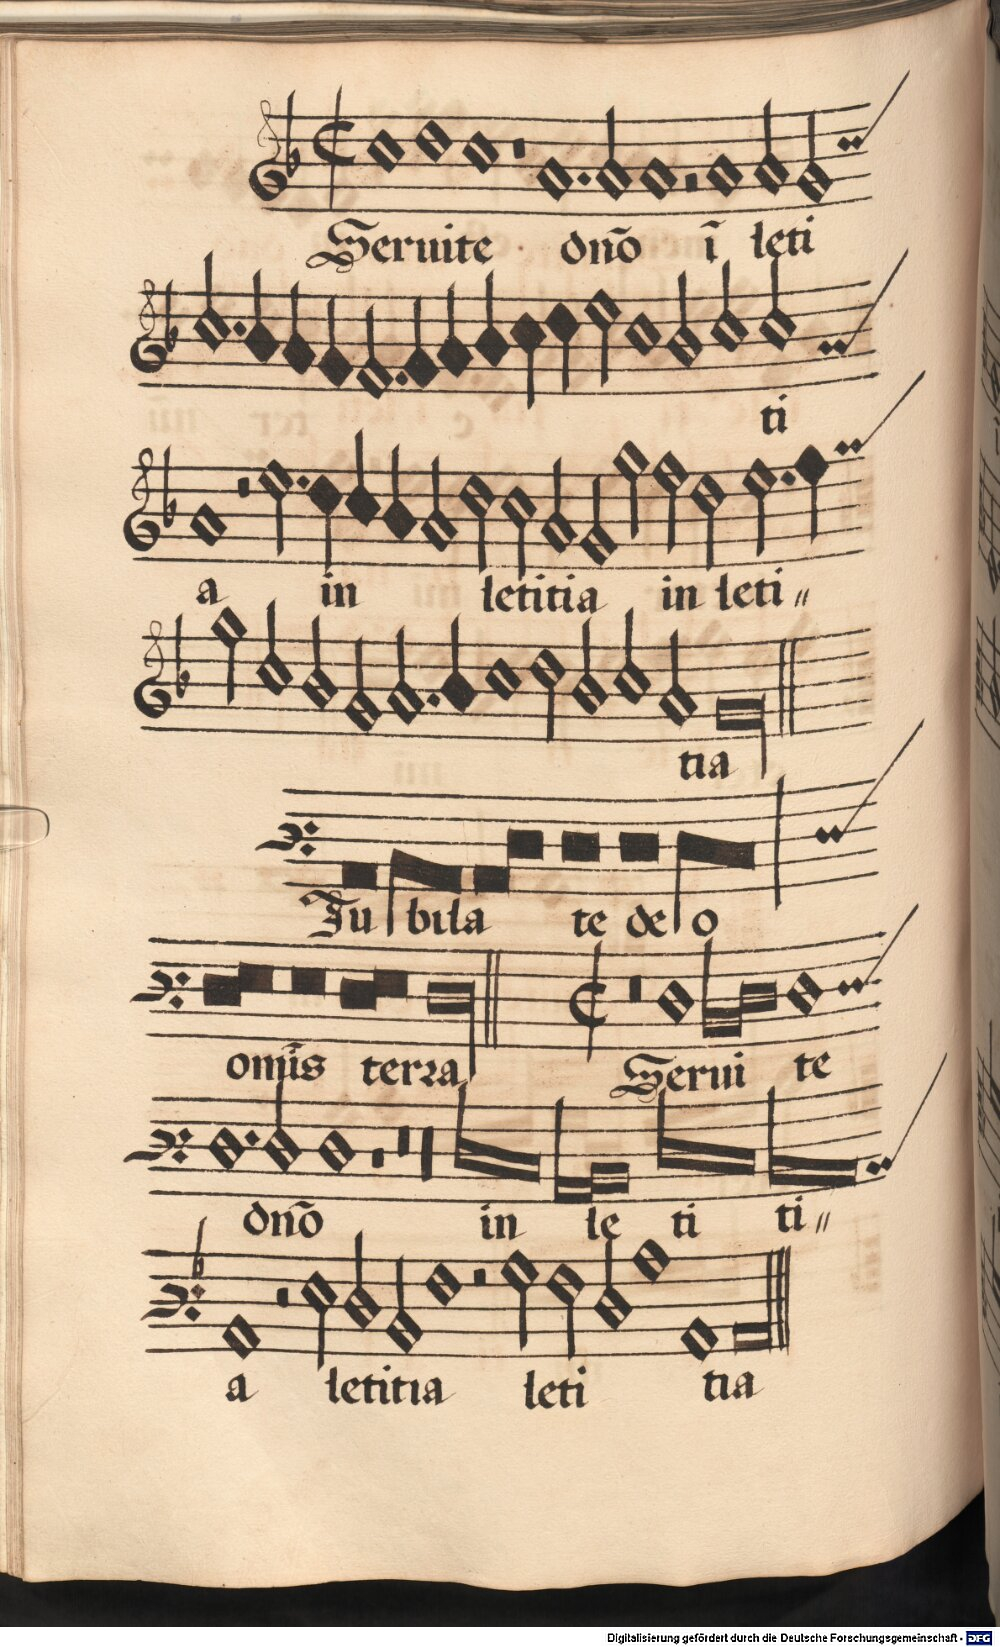 Seruite dnō ī leti
ti
a in letitia in leti〃
tia
Jubilate deo
omīs terra Seruite
dnō in letiti〃
a letitia letitia
Digitalisierung gefördert durch die Deutsche Forschungsgemeinschaft - DFG